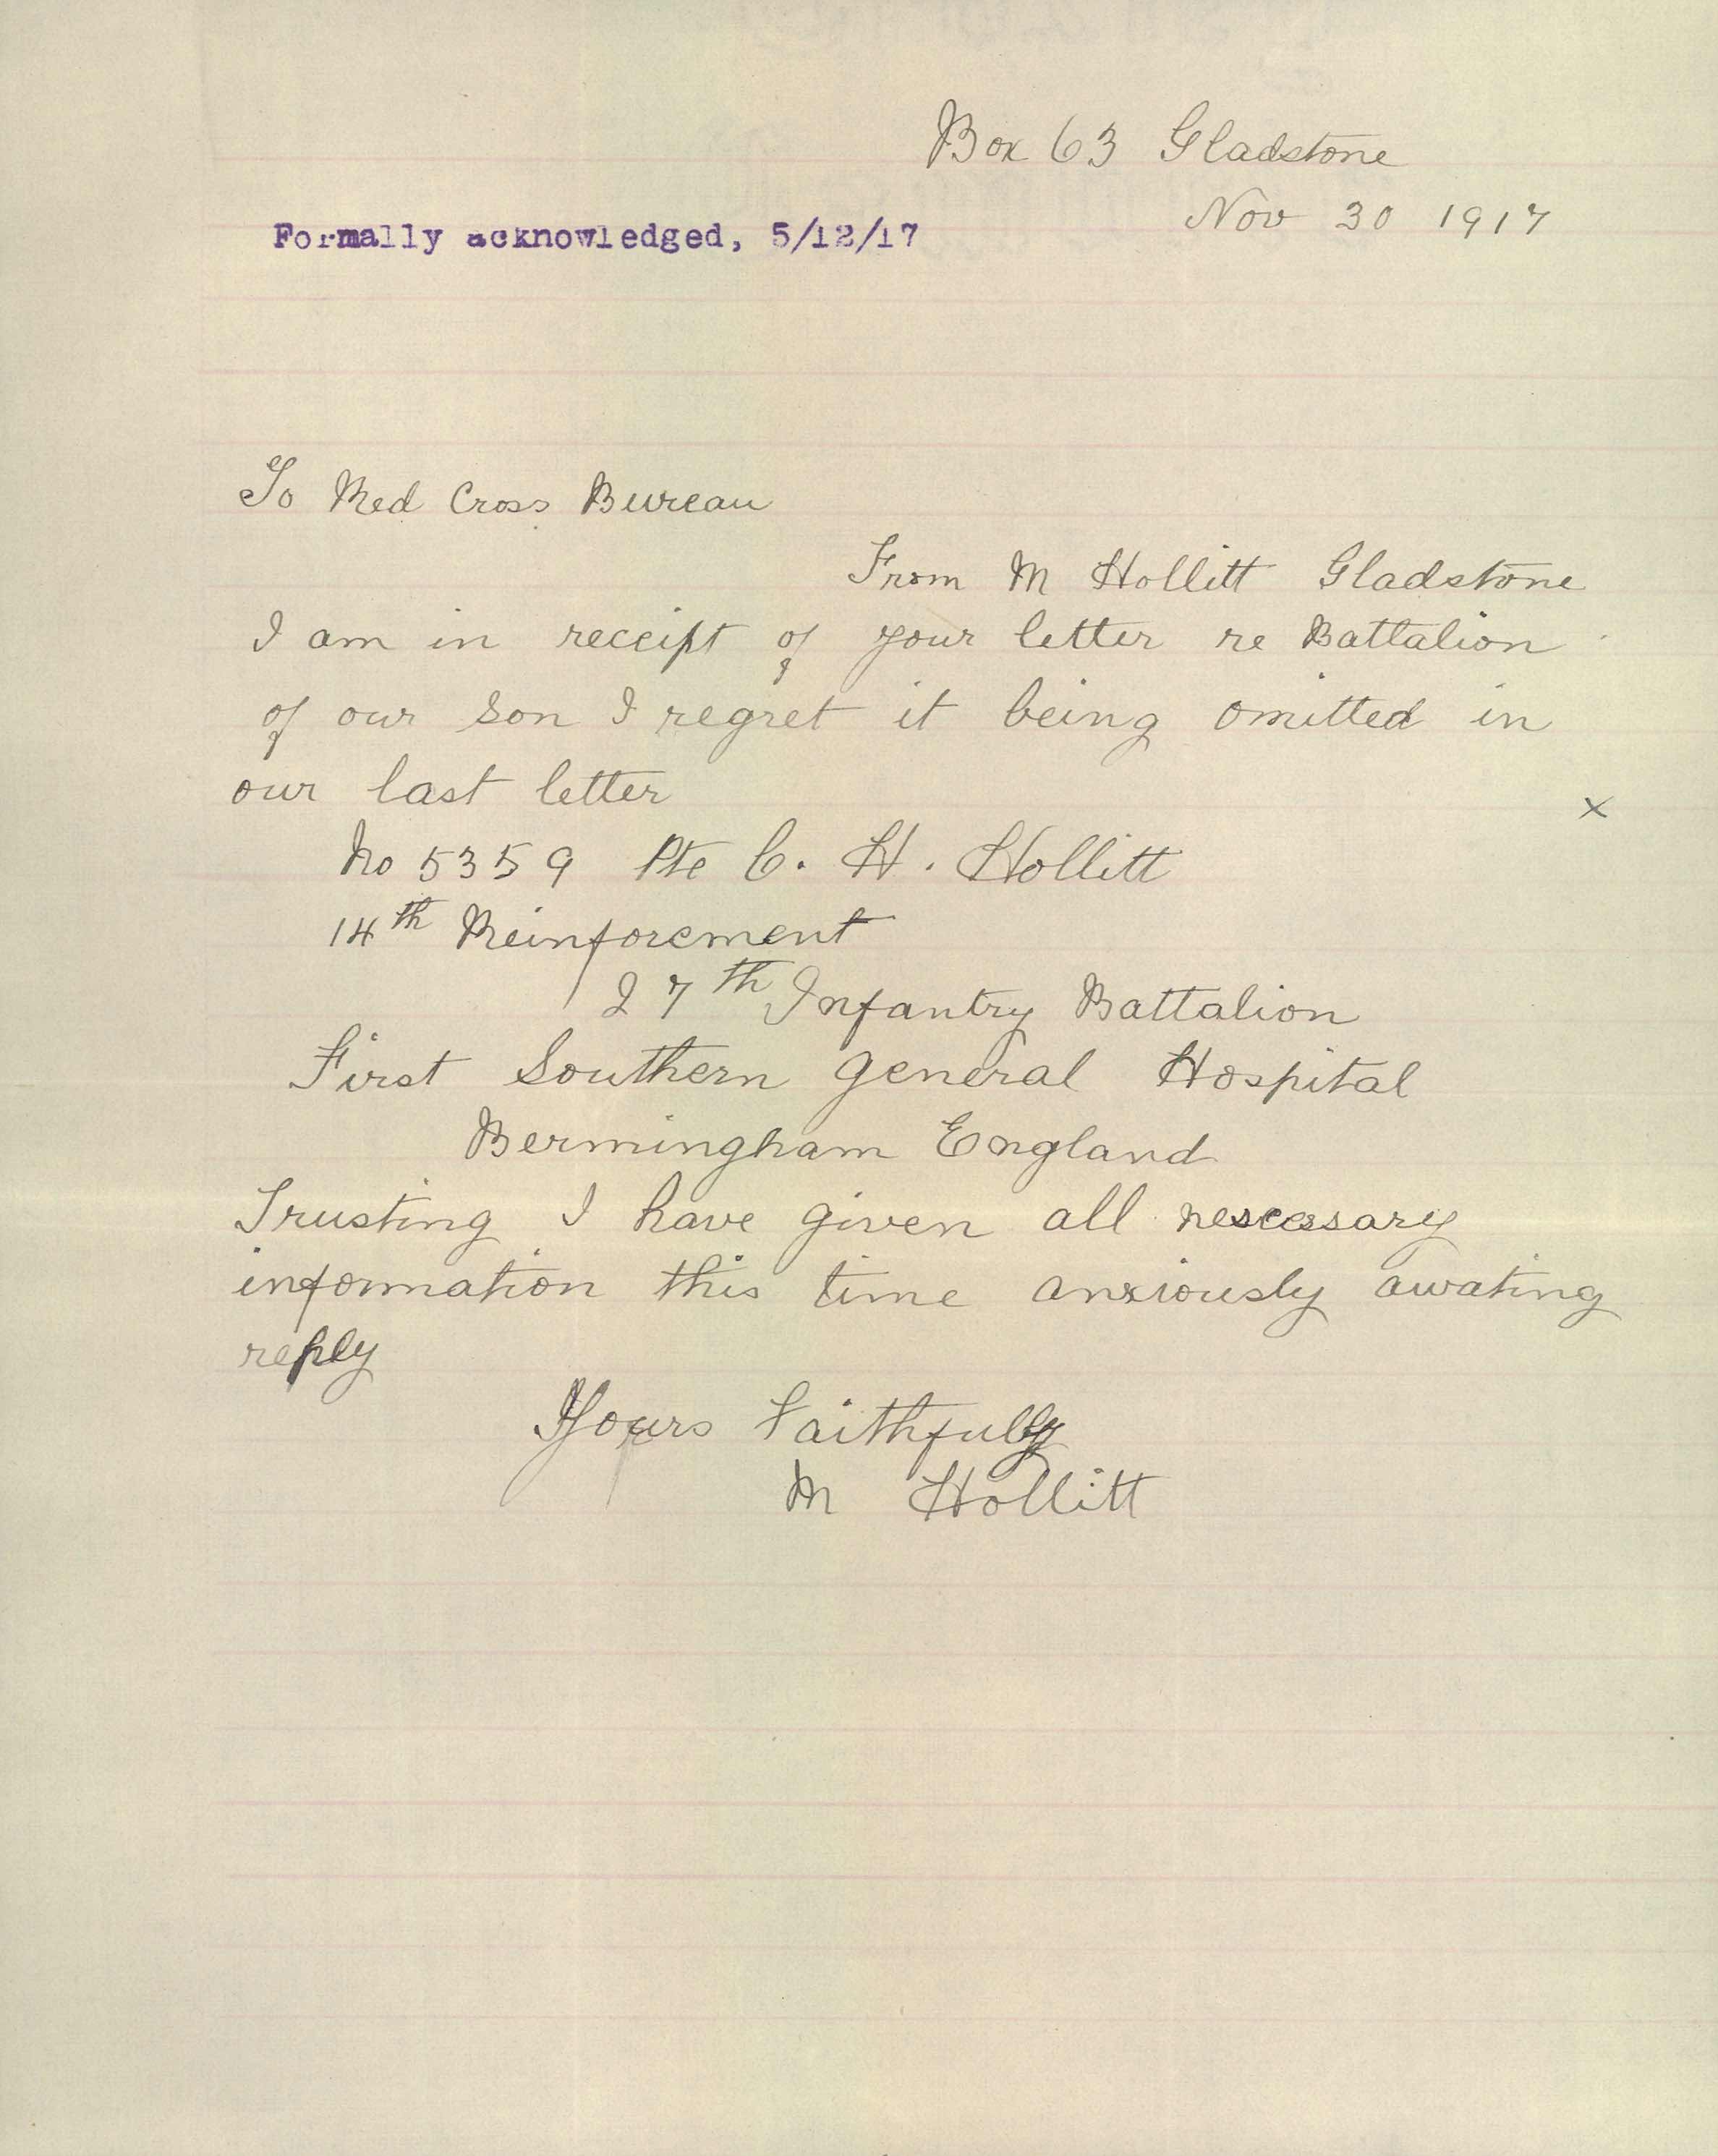 Box 63 Gladstone
Nov 30 1917
Formally acknowledged, 5/12/17
To Red Cross Bureau
From M Hollitt Gladstone
I am in receipt of your letter re Battalion
of our son I regret it being omitted in
our last letter
x
No 5359 Pte C. H. Hollitt
14th Reinforcement
27th Infantry Battalion
First Southern General Hospital
Bermingham England
Trusting I have given all nescessary
information this time anxiously awating
reply
Yours Faithfully
M Hollitt